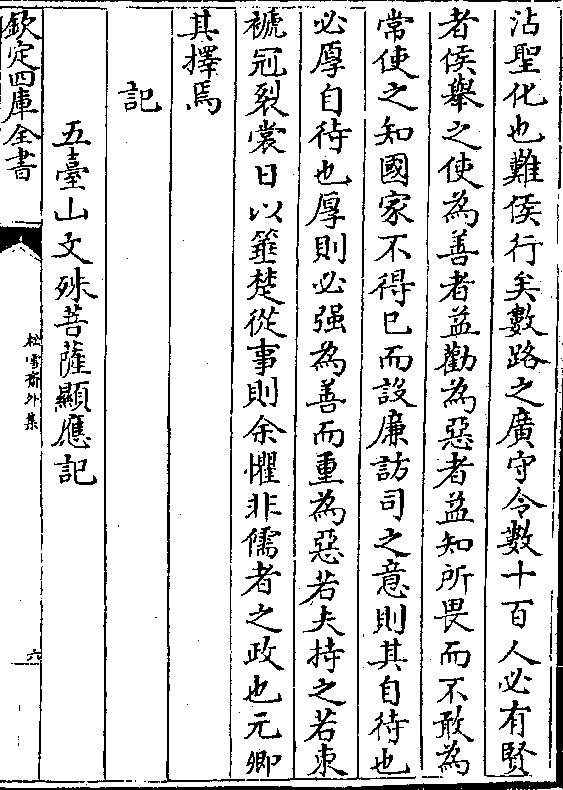 沾聖化也難侯行矣數路之廣守令數十百人必有賢
者侯舉之使為善者益勸為惡者益知所畏而不敢為
常使之知國家不得已而設廉訪司之意則其自待也
必厚自待也厚則必强為善而重為惡若夫持之若束
褫冠裂裳日以箠楚從事則余懼非儒者之政也元卿
其擇焉
記
五臺山文殊菩薩顯應記
欽定四庫全書
松雪齋外集
六